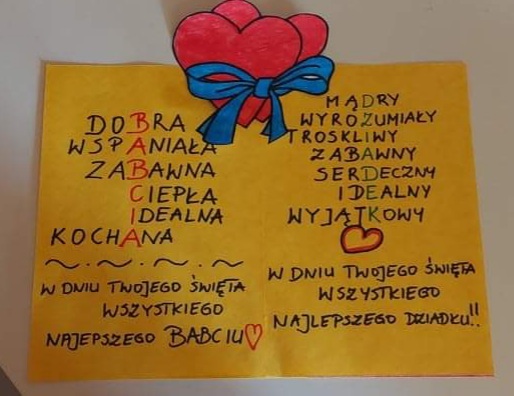 DOBRA
WSPANIAŁA
ZABAWNA
CIEPŁA
IDEALNA
KOCHANA
W DNIU TWOJEGO ŚWIĘTA
WSZYSTKIEGO
NAJEPSZEGO BABCIU
MĄDRY
WYROZUMIAŁY
TROSKLIWY
ZABAWNY
SERDECZNY
IDEALNY
WYJĄTKOWY
W DNIU TWOJEGO ŚWIĘTA
WSZYSTKIEGO
NAJLEPSZEGO DZIADKU!!